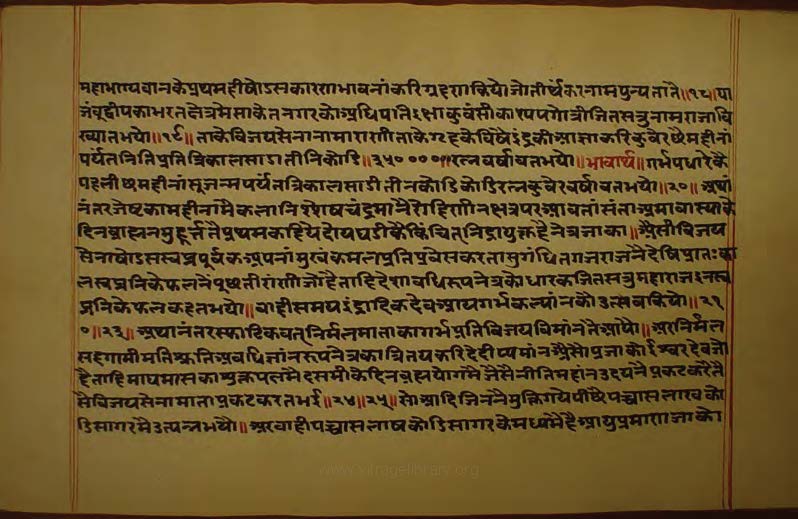 महाभाग्यवानके प्रथमही षोडसकारणभावनां करि ग्रहण कियो जो तीर्थंकरनाम पुन्य तातै॥१८॥ या
जंबूद्वीपका भरतक्षेत्रमे साकेतनगरको अधिपति इक्षाकुवंसी काश्यपगोत्री जितसत्रुनाम राजा वि
ख्यात भयो॥१९॥ ताके विजयसेनानामा राणी ताके गृहके विषे इंद्रकी आज्ञा करि कुबेर छै महीनां
पर्यंत निति प्रति त्रिकाल साडातीनिकोडि॥३५०००००॥रत्न वर्षावत भयो॥भावार्थ॥ गर्भ पधारेकै
पहली छमहीनांसू जन्मपर्यंत त्रिकाल साडीतीनकोडिकोडि रत्न कुबेर वर्षावत भयो॥२०॥ अथां
नंतर जेष्टका महीनांमै कलानिशेष चंद्रमानै रोहिणीनक्षत्र पर आवतां संता अमावास्याके
दिन ब्राह्मनमुहूर्त्ततै प्रथम कहिये दोय घडीके किंचित् निद्रायुक्त है नेत्र जाका॥ ऐसी विजय
सेना षोडसस्वप्नपूर्वक अपनां मुखकमल प्रति प्रवेस करता सुगंधित गजराजनै देषि प्रातःका
ल स्वप्ननिके फलनै पूछती राणी जो है ताहि देशावधिरूप नेत्रको धारक जितसत्रु महाराज इन स्व
प्ननिके फल कहत भयो॥ वाही समय इंद्रादिक देव आय गर्भकल्यांनको उत्सव कियो॥२१
०॥२३॥ अथानंतर स्फाटिकवत् निर्मल माताका गर्भ प्रति विजयविमांनतै आयो॥ अर निर्मल
सहगामी मति श्रुति अवधि ज्ञांनरूप नेत्रका त्रितय करि देदीप्यमांन ऐसो प्रजाको ईश्वर देव जो
है ताहि माघमासका शुक्लपक्षमै दसमीके दिन ब्रह्मयोगमै जैसै नीति महांन उदयनै प्रकट करै तै
सै विजयसेना माता प्रकट करत भई॥२४॥२५॥ सो आदिजिननै मुक्ति गये पीछै पच्चास लाख को
डि सागरमै उत्पन्न भयो॥ अर वाही पच्चास लाष कोडि सागरके मध्यमै है आयुप्रमाण जाको
www.vitragelibrary.org